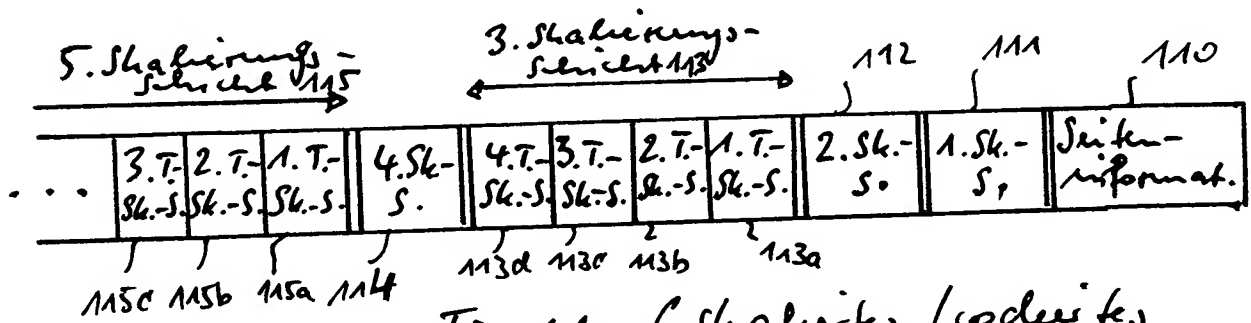 5. Skalierungs-
schicht 115
3. Skalierungs-
schicht 113
112
111
110
...
3. T.-
Sk.-S.
2. T.-
Sk.-S.
1. T.-
Sk.-S.
4. Sk.-
S.
4. T.-
Sk.-S.
3. T.-
Sk.-S.
2. T.-
Sk.-S.
1. T.-
Sk.-S.
2. Sk.-
S.
1. Sk.-
S.
Seiten-
informat.
115c
115b
115a
114
113d
113c
113b
113a